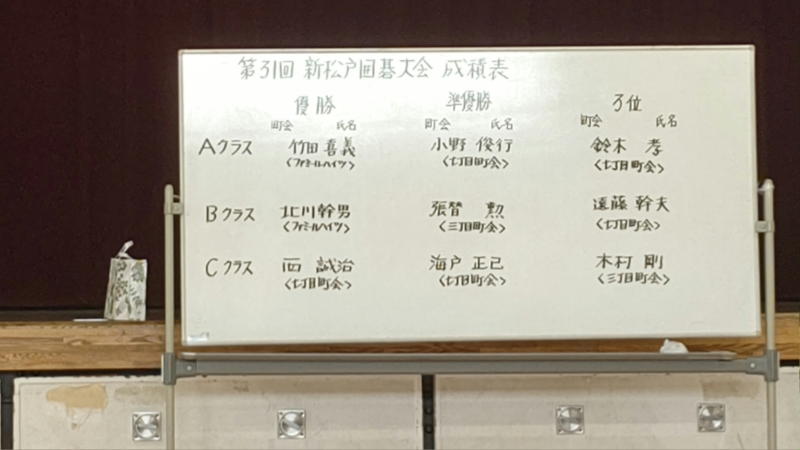 第31回 新松戸囲碁大会 成積表
優勝 準優勝 3位
町会 氏名 町会 氏名 町会 氏名
Aクラス 竹田喜義 小野 俊行 鈴木 孝
〈ファミールハイツ〉 〈七丁目町会〉 〈七丁目町会〉
Bクラス 北川幹男 張替 勲 遠藤 幹夫
〈ファミールハイツ〉 〈三丁目町会〉 〈七丁目町会〉
Cクラス 西 誠治 海戸 正己 木村 剛
〈七丁目町会〉 〈七丁目町会〉 〈三丁目町会〉